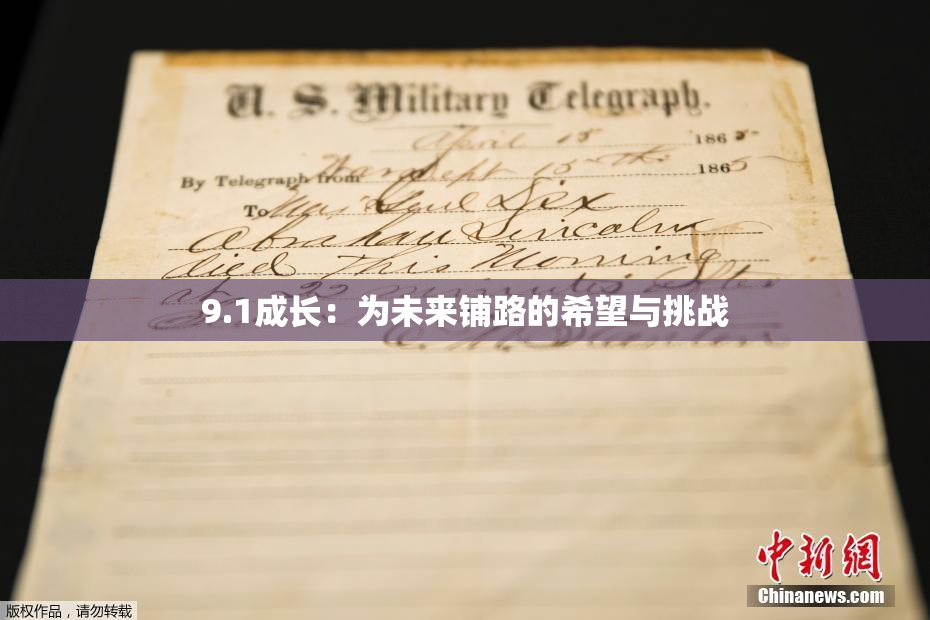 U. S. Military Telegraph.
April 15 1865
By Telegraph from War Dept 15th 1865
To Maj Genl Dix
Abraham Lincoln
died This Morning
at 22 minutes after
9.1成长：为未来铺路的希望与挑战
中新网
Chinanews.com
版权作品，请勿转载